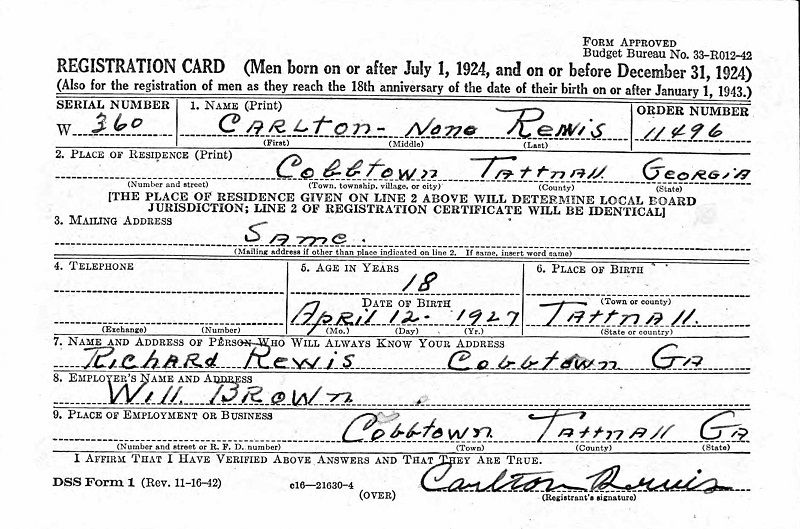 FORM APPROVED
Budget Bureau No. 33-R012-42
REGISTRATION CARD (Men born on or after July 1, 1924, and on or before December 31, 1924)
(Also for the registration of men as they reach the 18th anniversary of the date of their birth on or after January 1, 1943.)
SERIAL NUMBER 1. NAME (Print) ORDER NUMBER
W 360 CARLTON- None Rewis 11496
(First) (Middle) (Last)
2. PLACE OF RESIDENCE (Print)
Cobbtown TATTNALL GEORGIA
(Number and street) (Town, township, village, or city) (County) (State)
[THE PLACE OF RESIDENCE GIVEN ON LINE 2 ABOVE WILL DETERMINE LOCAL BOARD
JURISDICTION; LINE 2 OF REGISTRATION CERTIFICATE WILL BE IDENTICAL]
3. MAILING ADDRESS
SAME.
(Mailing address if other than place indicated on line 2. If same, insert word same)
4. TELEPHONE 5. AGE IN YEARS 6. PLACE OF BIRTH
18
DATE OF BIRTH (Town or county)
April 12. 1927 TATTNALL.
(Exchange) (Number) (Mo.) (Day) (Yr.) (State or country)
7. NAME AND ADDRESS OF PERSON WHO WILL ALWAYS KNOW YOUR ADDRESS
Richard Rewis Cobbtown GA
8. EMPLOYER'S NAME AND ADDRESS
Will BROWN
9. PLACE OF EMPLOYMENT OR BUSINESS
Cobbtown TATTNALL GA
(Number and street or R. F. D. number) (Town) (County) (State)
I AFFIRM THAT I HAVE VERIFIED ABOVE ANSWERS AND THAT THEY ARE TRUE.
DSS Form 1 (Rev. 11-16-42) c16—21630-4 Carlton Rewis
(OVER) (Registrant's signature)